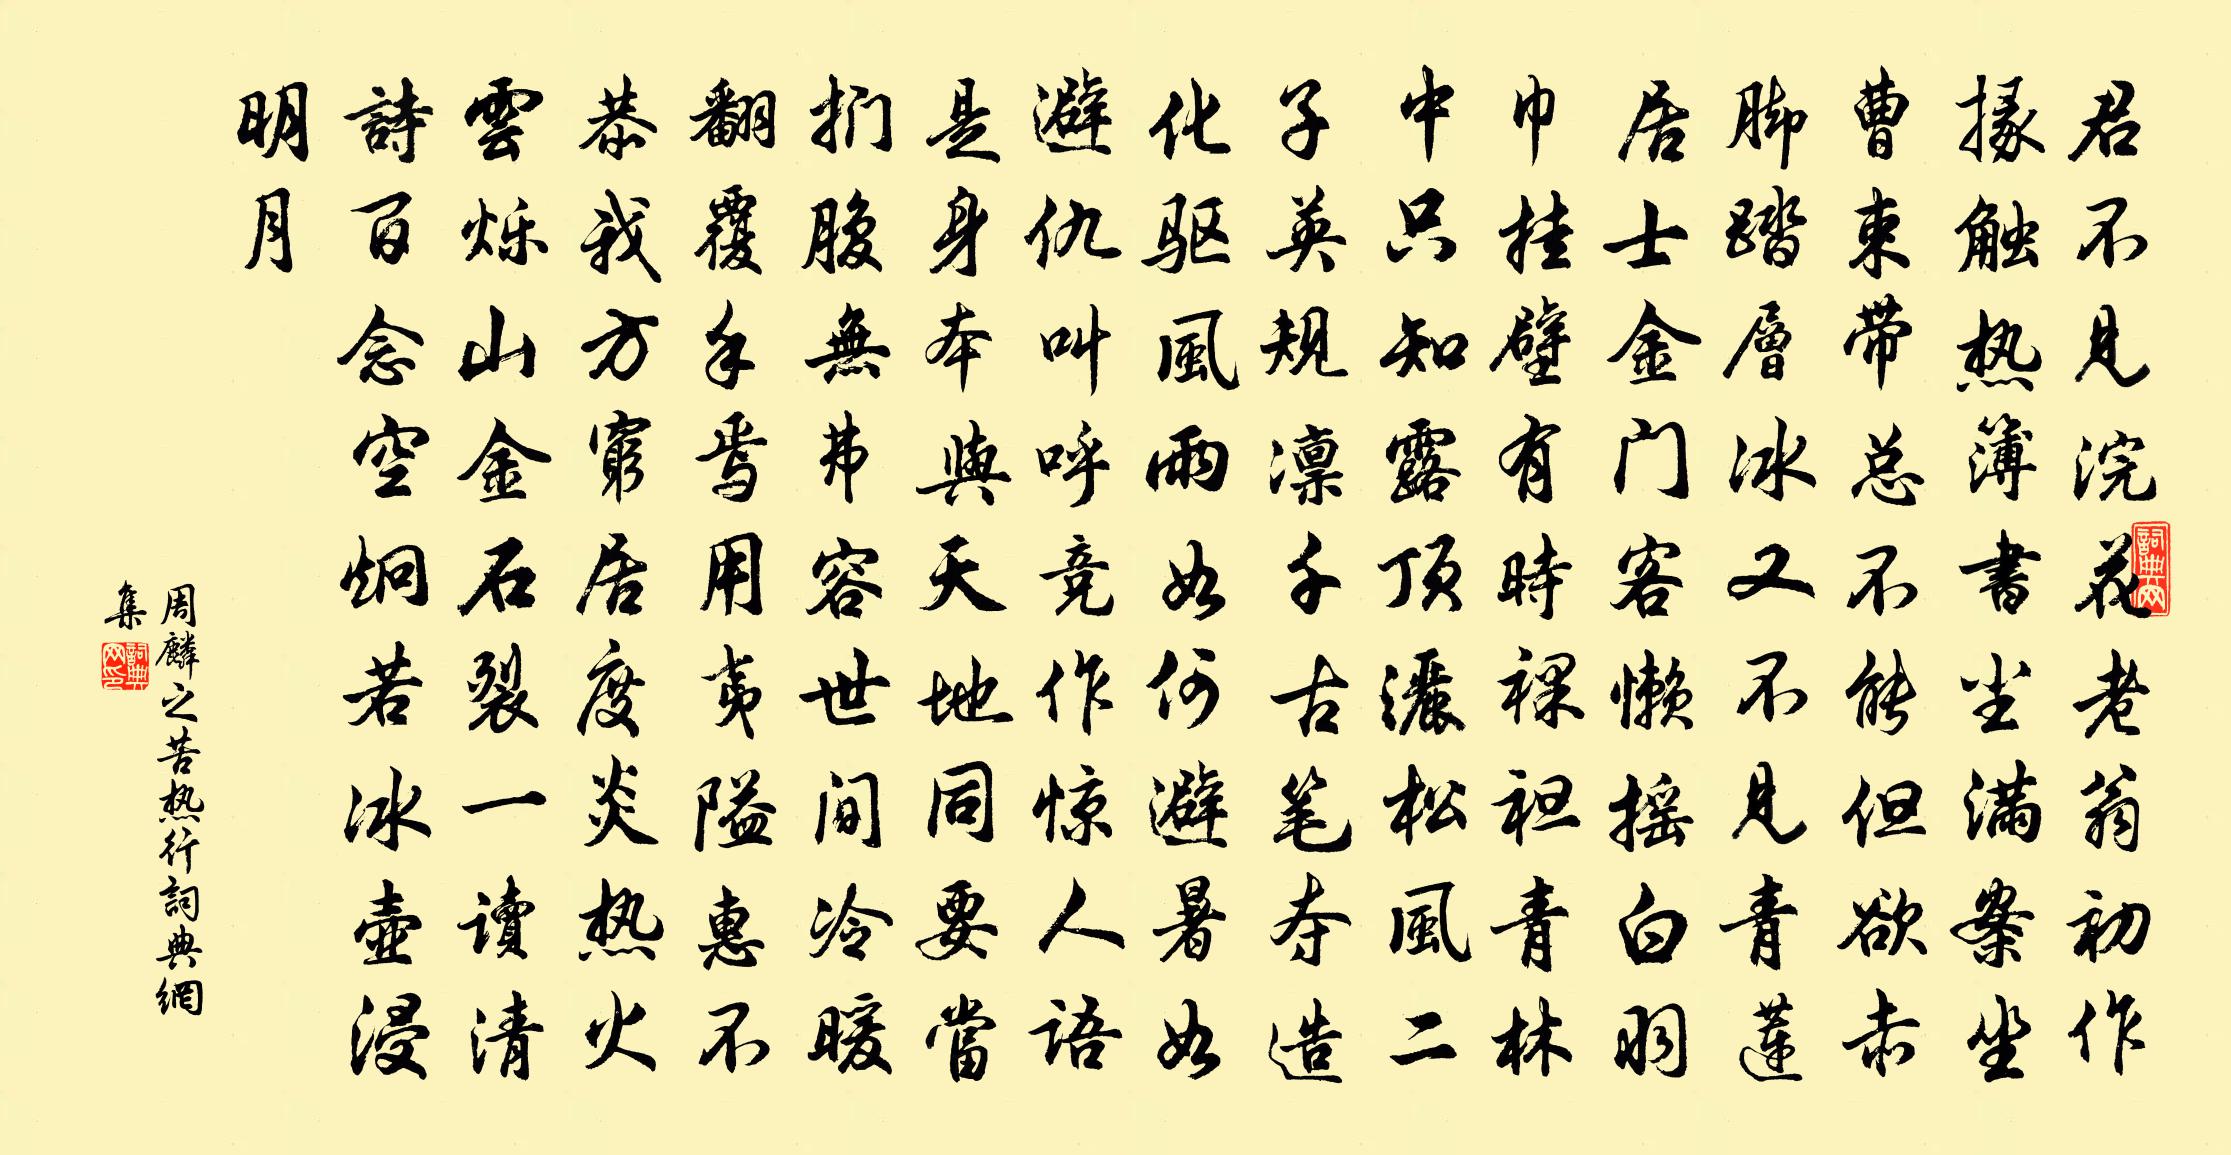 君不見浣花老翁初作
掾触热簿書尘滿案坐
曹束带总不能但欲赤
脚踏層冰又不見青蓮
居士金门客懒摇白羽
巾挂壁有時裸袒青林
中只知露顶灑松風二
子英規凛千古笔夺造
化驱風雨如何避暑如
避仇叫呼竞作惊人語
是身本與天地同要當
捫腹無弗容世间冷暖
翻覆手焉用夷隘惠不
恭我方窮居度炎热火
雲烁山金石裂一讀清
詩百念空炯若冰壺浸
明月
周麟之苦热行詞典網
集
詞典网
詞典网印